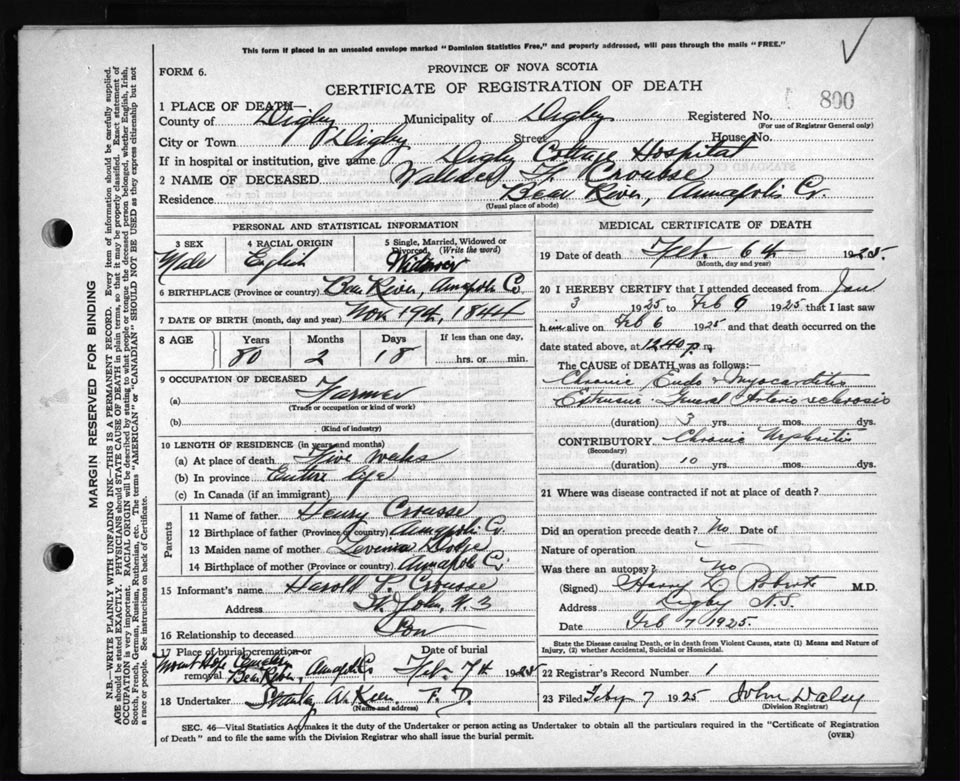 This form if placed in an unsealed envelope marked "Dominion Statistics Free," and properly addressed, will pass through the mails "FREE."
FORM 6.
PROVINCE OF NOVA SCOTIA
CERTIFICATE OF REGISTRATION OF DEATH
800
1 PLACE OF DEATH—
County of Digby Municipality of Digby Registered No.
(For use of Registrar General only)
City or Town Digby Street House No.
If in hospital or institution, give name Digby Cottage Hospital
2 NAME OF DECEASED F. Crousse
Residence Bear River, Annapolis Co.
(Usual place of abode)
PERSONAL AND STATISTICAL INFORMATION
3 SEX 4 RACIAL ORIGIN 5 Single, Married, Widowed or Divorced (Write the word)
Male English Widower
6 BIRTHPLACE (Province or country) Bear River, Annapolis Co
7 DATE OF BIRTH (month, day and year) Nov. 19th, 1844
8 AGE Years Months Days If less than one day,
80 2 18 ....hrs. or ....min.
9 OCCUPATION OF DECEASED
(a) Farmer
(Trade or occupation or kind of work)
(b)
(Kind of industry)
10 LENGTH OF RESIDENCE (in years and months)
(a) At place of death Five weeks
(b) In province Entire life
(c) In Canada (if an immigrant)
Parents
11 Name of father Henry Crousse
12 Birthplace of father (Province or country) Annapolis Co.
13 Maiden name of mother Dodge
14 Birthplace of mother (Province or country) Annapolis Co.
15 Informant's name Harold P. Crousse
Address St. John, N.B
16 Relationship to deceased Son
17 Place of burial, cremation or removal Date of burial
Mount Hope Cemetery
Bear River, Annapolis Co Feb. 7th 1925
18 Undertaker Stanley F. D.
(Name and address)
MEDICAL CERTIFICATE OF DEATH
19 Date of death Feb. 6th 1925.
(Month, day and year)
20 I HEREBY CERTIFY that I attended deceased from Jan
3 1925 to Feb 6 1925 that I last saw
him alive on Feb 6 1925 and that death occurred on
date stated above, at 12.40 p.m.
The CAUSE OF DEATH was as follows:
Chronic Endo & Myocarditis
Extensive General Arterio-sclerosis
(duration) 3 yrs. mos. dys.
CONTRIBUTORY Chronic Nephritis
(Secondary)
(duration) 10 yrs. mos. dys.
21 Where was disease contracted if not at place of death?
Did an operation precede death? No Date of
Nature of operation
Was there an autopsy? No
(Signed) Harry L Roberts M.D.
Address Digby N.S.
Date Feb 7 1925
State the Disease causing Death, or in death from Violent Causes, state (1) Means and Nature of Injury, (2) whether Accidental, Suicidal or Homicidal.
22 Registrar's Record Number 1
23 Filed Feby 7 1925 John Daley
(Division Registrar)
SEC. 46—Vital Statistics Act makes it the duty of the Undertaker or person acting as Undertaker to obtain all the particulars required in the "Certificate of Registration
of Death" and to file the same with the Division Registrar who shall issue the burial permit.
(OVER)
MARGIN RESERVED FOR BINDING
N.B.—WRITE PLAINLY WITH UNFADING INK—THIS IS A PERMANENT RECORD. Every item of information should be carefully supplied.
AGE should be stated EXACTLY. PHYSICIANS should STATE CAUSE OF DEATH in plain terms, so that it may be properly classified. Exact statement of
OCCUPATION is very important. RACIAL ORIGIN will be described by stating to what people or tongue the deceased person belonged, whether English, Irish,
Scotch, French, German, Russian, Ruthenian, etc. The terms "AMERICAN" or "CANADIAN" SHOULD NOT BE USED as they express citizenship but not
a race or people. See instructions on back of Certificate.